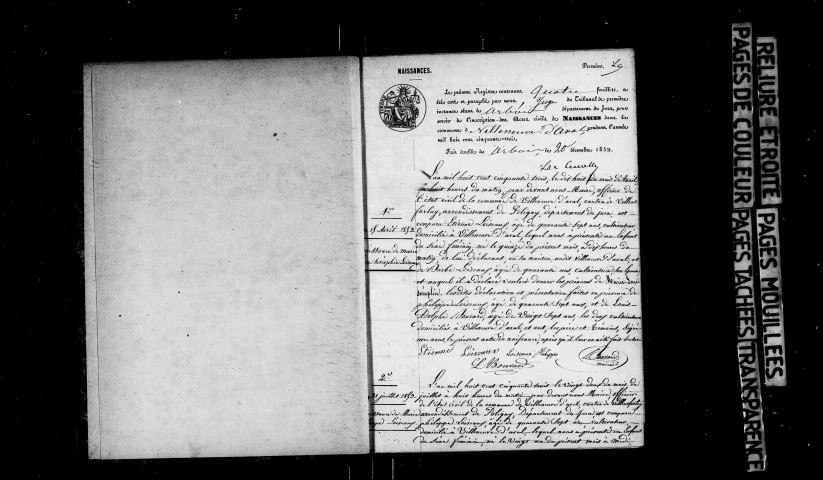 NAISSANCES.
Première,
Le présent Registre contenant quatre feuillets, a
été coté et paraphé par nous Juge du Tribunal de première
instance séant de Arbois département du Jura, pour
servir de l'inscription des Actes civils de NAISSANCES dans la
commune de Villeneuve-d'Aval pendant l'année
mil huit cent cinquante-trois.
Fait double à Arbois, le 20 décembre 1852.
1er
15 Avril 1853
naissance de Marie
L'an mil huit cent cinquante trois, le dix huit du mois d'Avril
à huit heures du matin, par devant nous Maire, officier de
l'état civil de la commune de Villeneuve d'aval, canton de Villers
farlay, arrondissement de Poligny, département du jura, est
comparu Etienne Loiseaux, agé de quarante sept ans, cultivateur,
domicilié à Villeneuve d'aval, lequel nous a présenté un Enfant
du sexe féminin, né le quinze du présent mois, à dix heures du
matin, de lui déclarant, en sa maison, audit Villeneuve d'aval, et
de Barbe Loiseaux, agée de quarante ans, cultivatrice, son épouse
et auquel il a déclaré vouloir donner les prénoms de Marie
lesdites déclaration et présentation faites en présence de
philippe Loiseaux, agé de quarante sept ans, et de Louis
Adolphe Bouvard, agé de vingt sept ans, les deux cultivateurs
domiciliés à Villeneuve d'aval, et ont, les père et témoins, signé
avec nous, le présent acte de naissance, après qu'il leur en a été fait lecture
Etienne Loiseaux Loiseaux Philippe Bouvard
L Bouvard
2e
21 juillet 1853
naissance de Marie
L'an mil huit cent cinquante trois le vingt deux du mois de
juillet à huit heures du matin par devant nous Maire, officier
de l'état civil de la commune de Villeneuve d'aval canton de
arrondissement de Poligny, Département du Jura est comparu
philippe Loiseaux, agé de quarante sept ans, cultivateur,
domicilié à Villeneuve d'aval, lequel nous a présenté un Enfant
du sexe féminin, né le vingt un du présent mois à midi
RELIURE ÉTROITE PAGES MOUILLÉES
PAGES DE COULEUR PAGES TACHÉES TRANSPARENCE